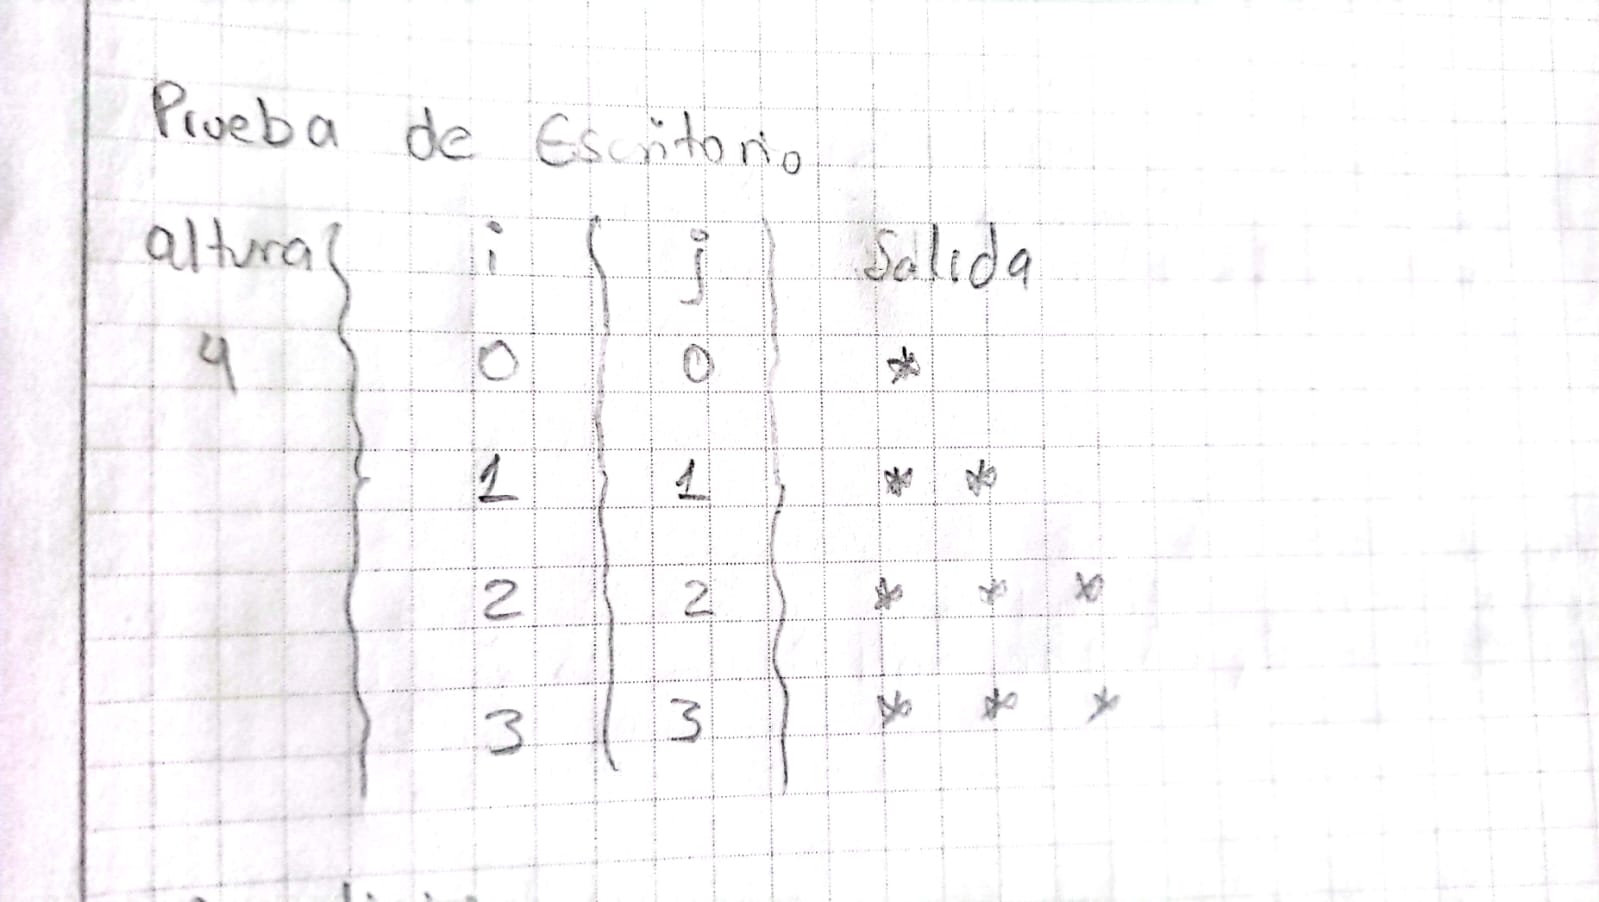 Prueba de Escritorio
altura { i { j } Salida
4 0 0 *
1 1 * *
2 2 * * *
3 3 * * *